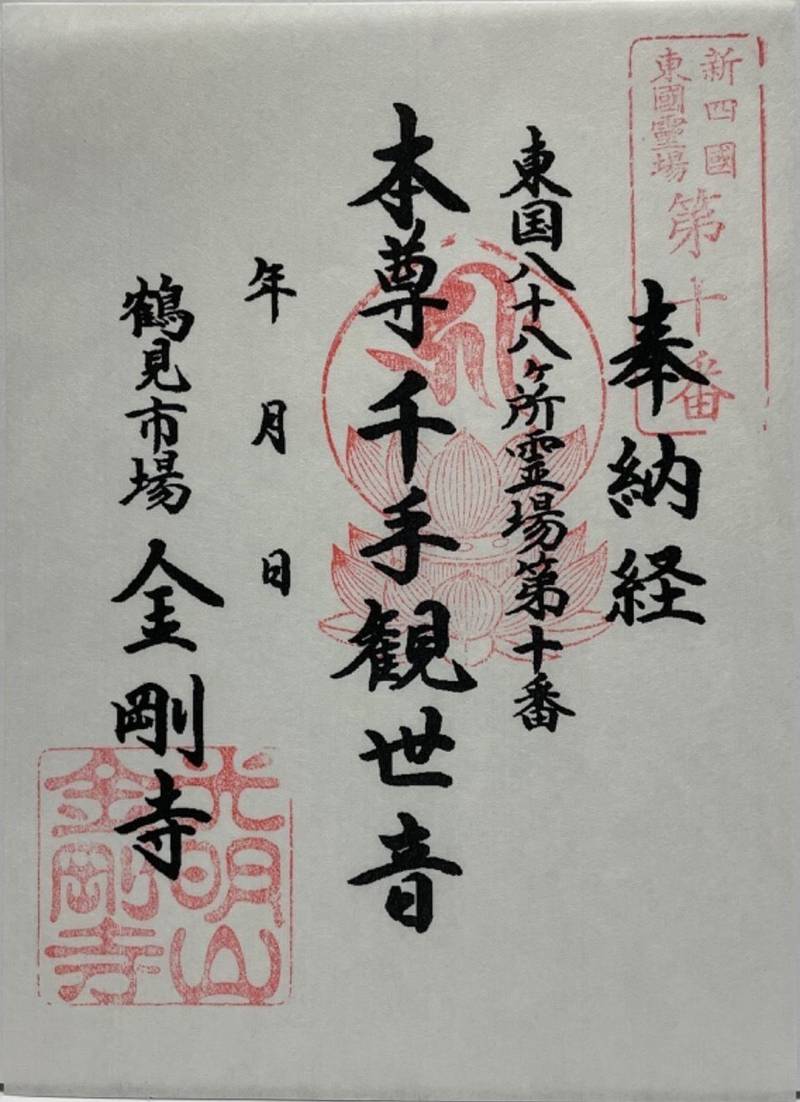 新四國
東國霊場
第十番
奉納経
東国八十八ヶ所霊場第十番
本尊千手観世音
年月日
鶴見市場
金剛寺
光明山
金剛寺